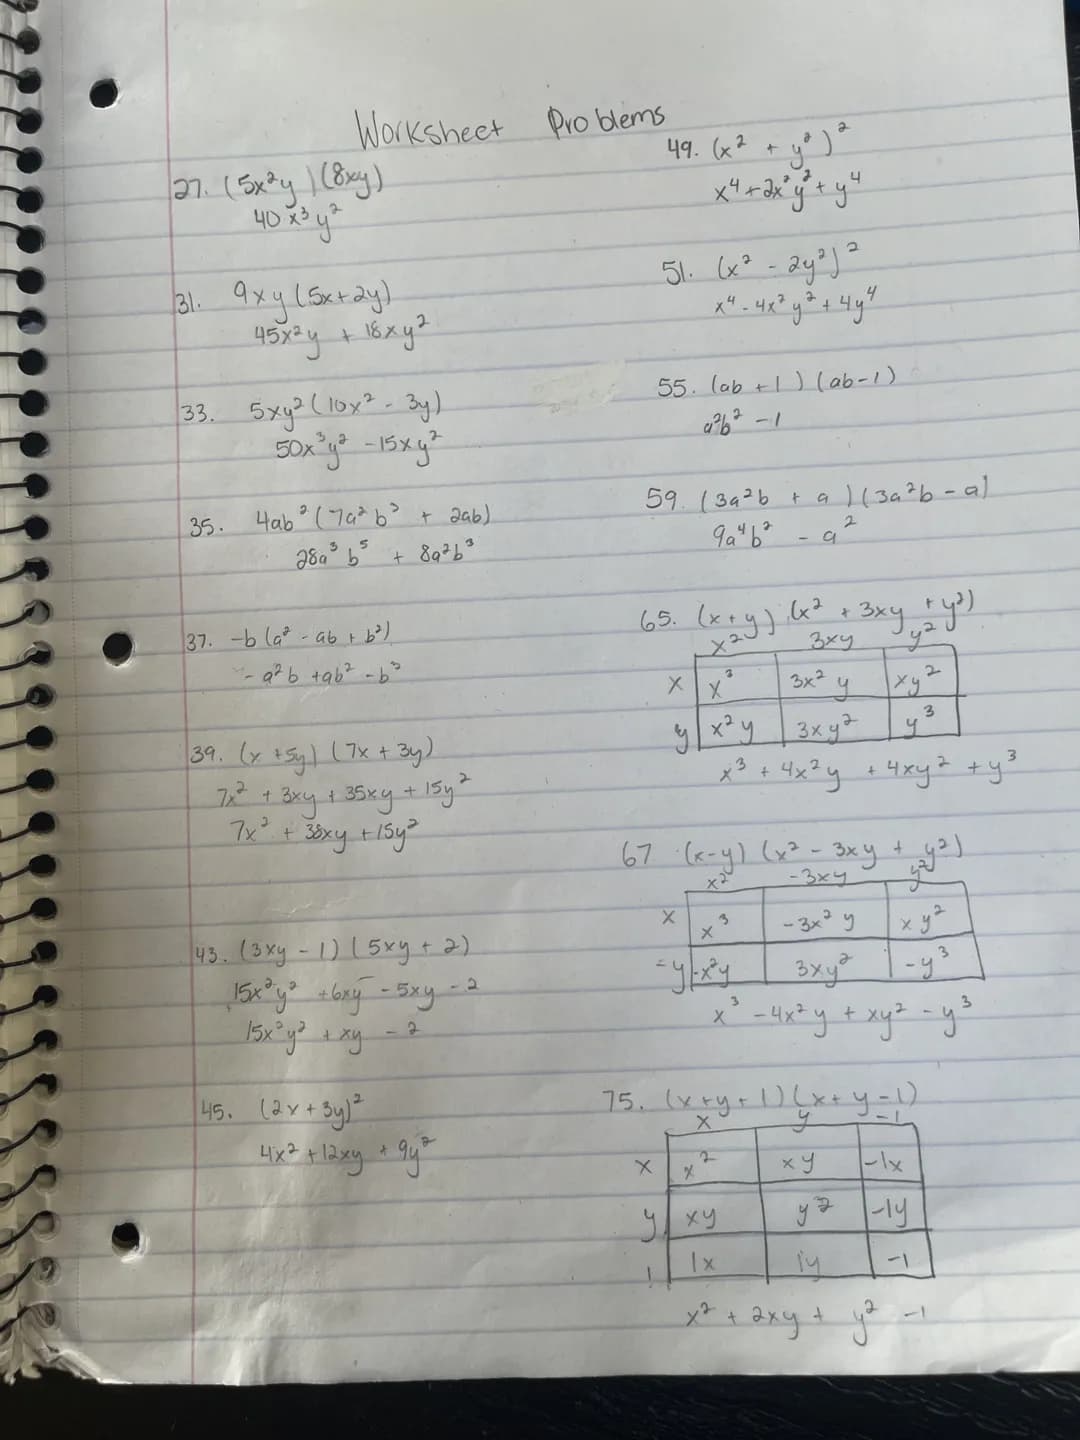 Worksheet Problems
27. (5x²y)(8xy)
40x³y²
31. 9xy(5x+2y)
45x²y + 18xy²
33. 5xy²(10x² - 3y)
50x³y² - 15xy²
35. 4ab²(7a²b³ + 2ab)
28a³b⁵ + 8a²b³
37. -b(a² - ab + b²)
- a²b + ab² - b³
39. (x + 5y)(7x + 3y)
7x² + 3xy + 35xy + 15y²
7x² + 38xy + 15y²
43. (3xy - 1)(5xy + 2)
15x²y² + 6xy - 5xy - 2
15x²y² + xy - 2
45. (2x + 3y)²
4x² + 12xy + 9y²
49. (x² + y²)²
x⁴ + 2x²y² + y⁴
51. (x² - 2y²)²
x⁴ - 4x²y² + 4y⁴
55. (ab + 1)(ab - 1)
a²b² - 1
59. (3a²b + a)(3a²b - a)
9a⁴b² - a²
65. (x + y)(x² + 3xy + y²)
x² 3xy y²
x x³ 3x²y xy²
y x²y 3xy² y³
x³ + 4x²y + 4xy² + y³
67 (x - y)(x² - 3xy + y²)
x² -3xy y²
x x³ -3x²y xy²
-y -x²y 3xy² -y³
x³ - 4x²y + xy² - y³
75. (x + y + 1)(x + y - 1)
x y -1
x x² xy -1x
y xy y² -1y
1 1x 1y -1
x² + 2xy + y² - 1